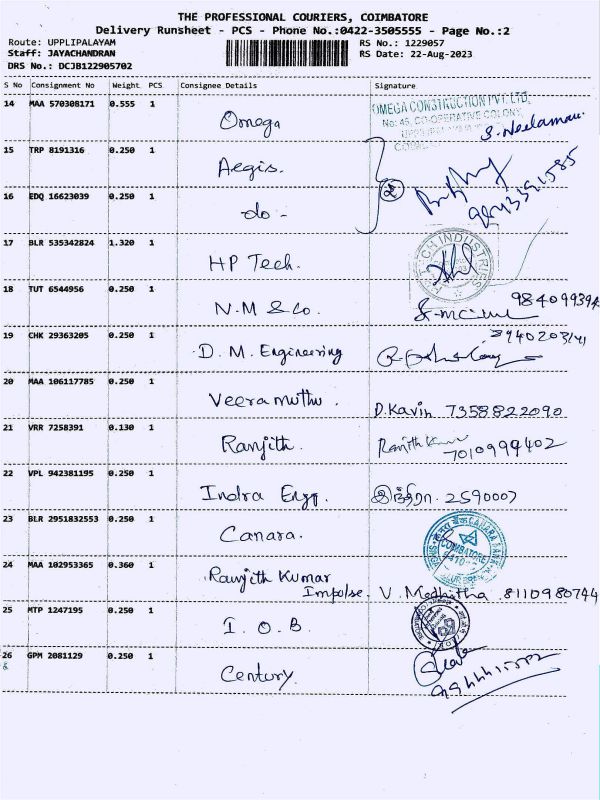 THE PROFESSIONAL COURIERS, COIMBATORE
Delivery Runsheet - PCS - Phone No.:0422-3505555 - Page No.:2
Route: UPPLIPALAYAM RS No.: 1229057
Staff: JAYACHANDRAN RS Date: 22-Aug-2023
DRS No.: DCJB122905702
S No Consignment No Weight PCS Consignee Details Signature
14 MAA 570308171 0.555 1 Omega OMEGA CONSTRUCTION PVT. LTD.
No: 45, CO-OPERATIVE COLONY,
S. Neelamau.
15 TRP 8191316 0.250 1 Aegis.
16 EDQ 16623039 0.250 1 do - 2
17 BLR 535342824 1.320 1 HP Tech. INDUSTRIES
18 TUT 6544956 0.250 1 N.M & Co.
19 CHK 29363205 0.250 1 D. M. Engineering
20 MAA 106117785 0.250 1 Veeramuthu. D.Kavin 7358822090
21 VRR 7258391 0.130 1 Ranjith. Ranjith Kumar
7010999402
22 VPL 942381195 0.250 1 Indra Engg. இந்திரா. 2590007
23 BLR 2951832553 0.250 1 Canara. CANARA BANK COIMBATORE
24 MAA 102953365 0.360 1 Ranjith Kumar
Impulse. V. Medhitha .8110980744
25 MTP 1247195 0.250 1 I. O. B.
26 GPM 2081129 0.250 1 Century